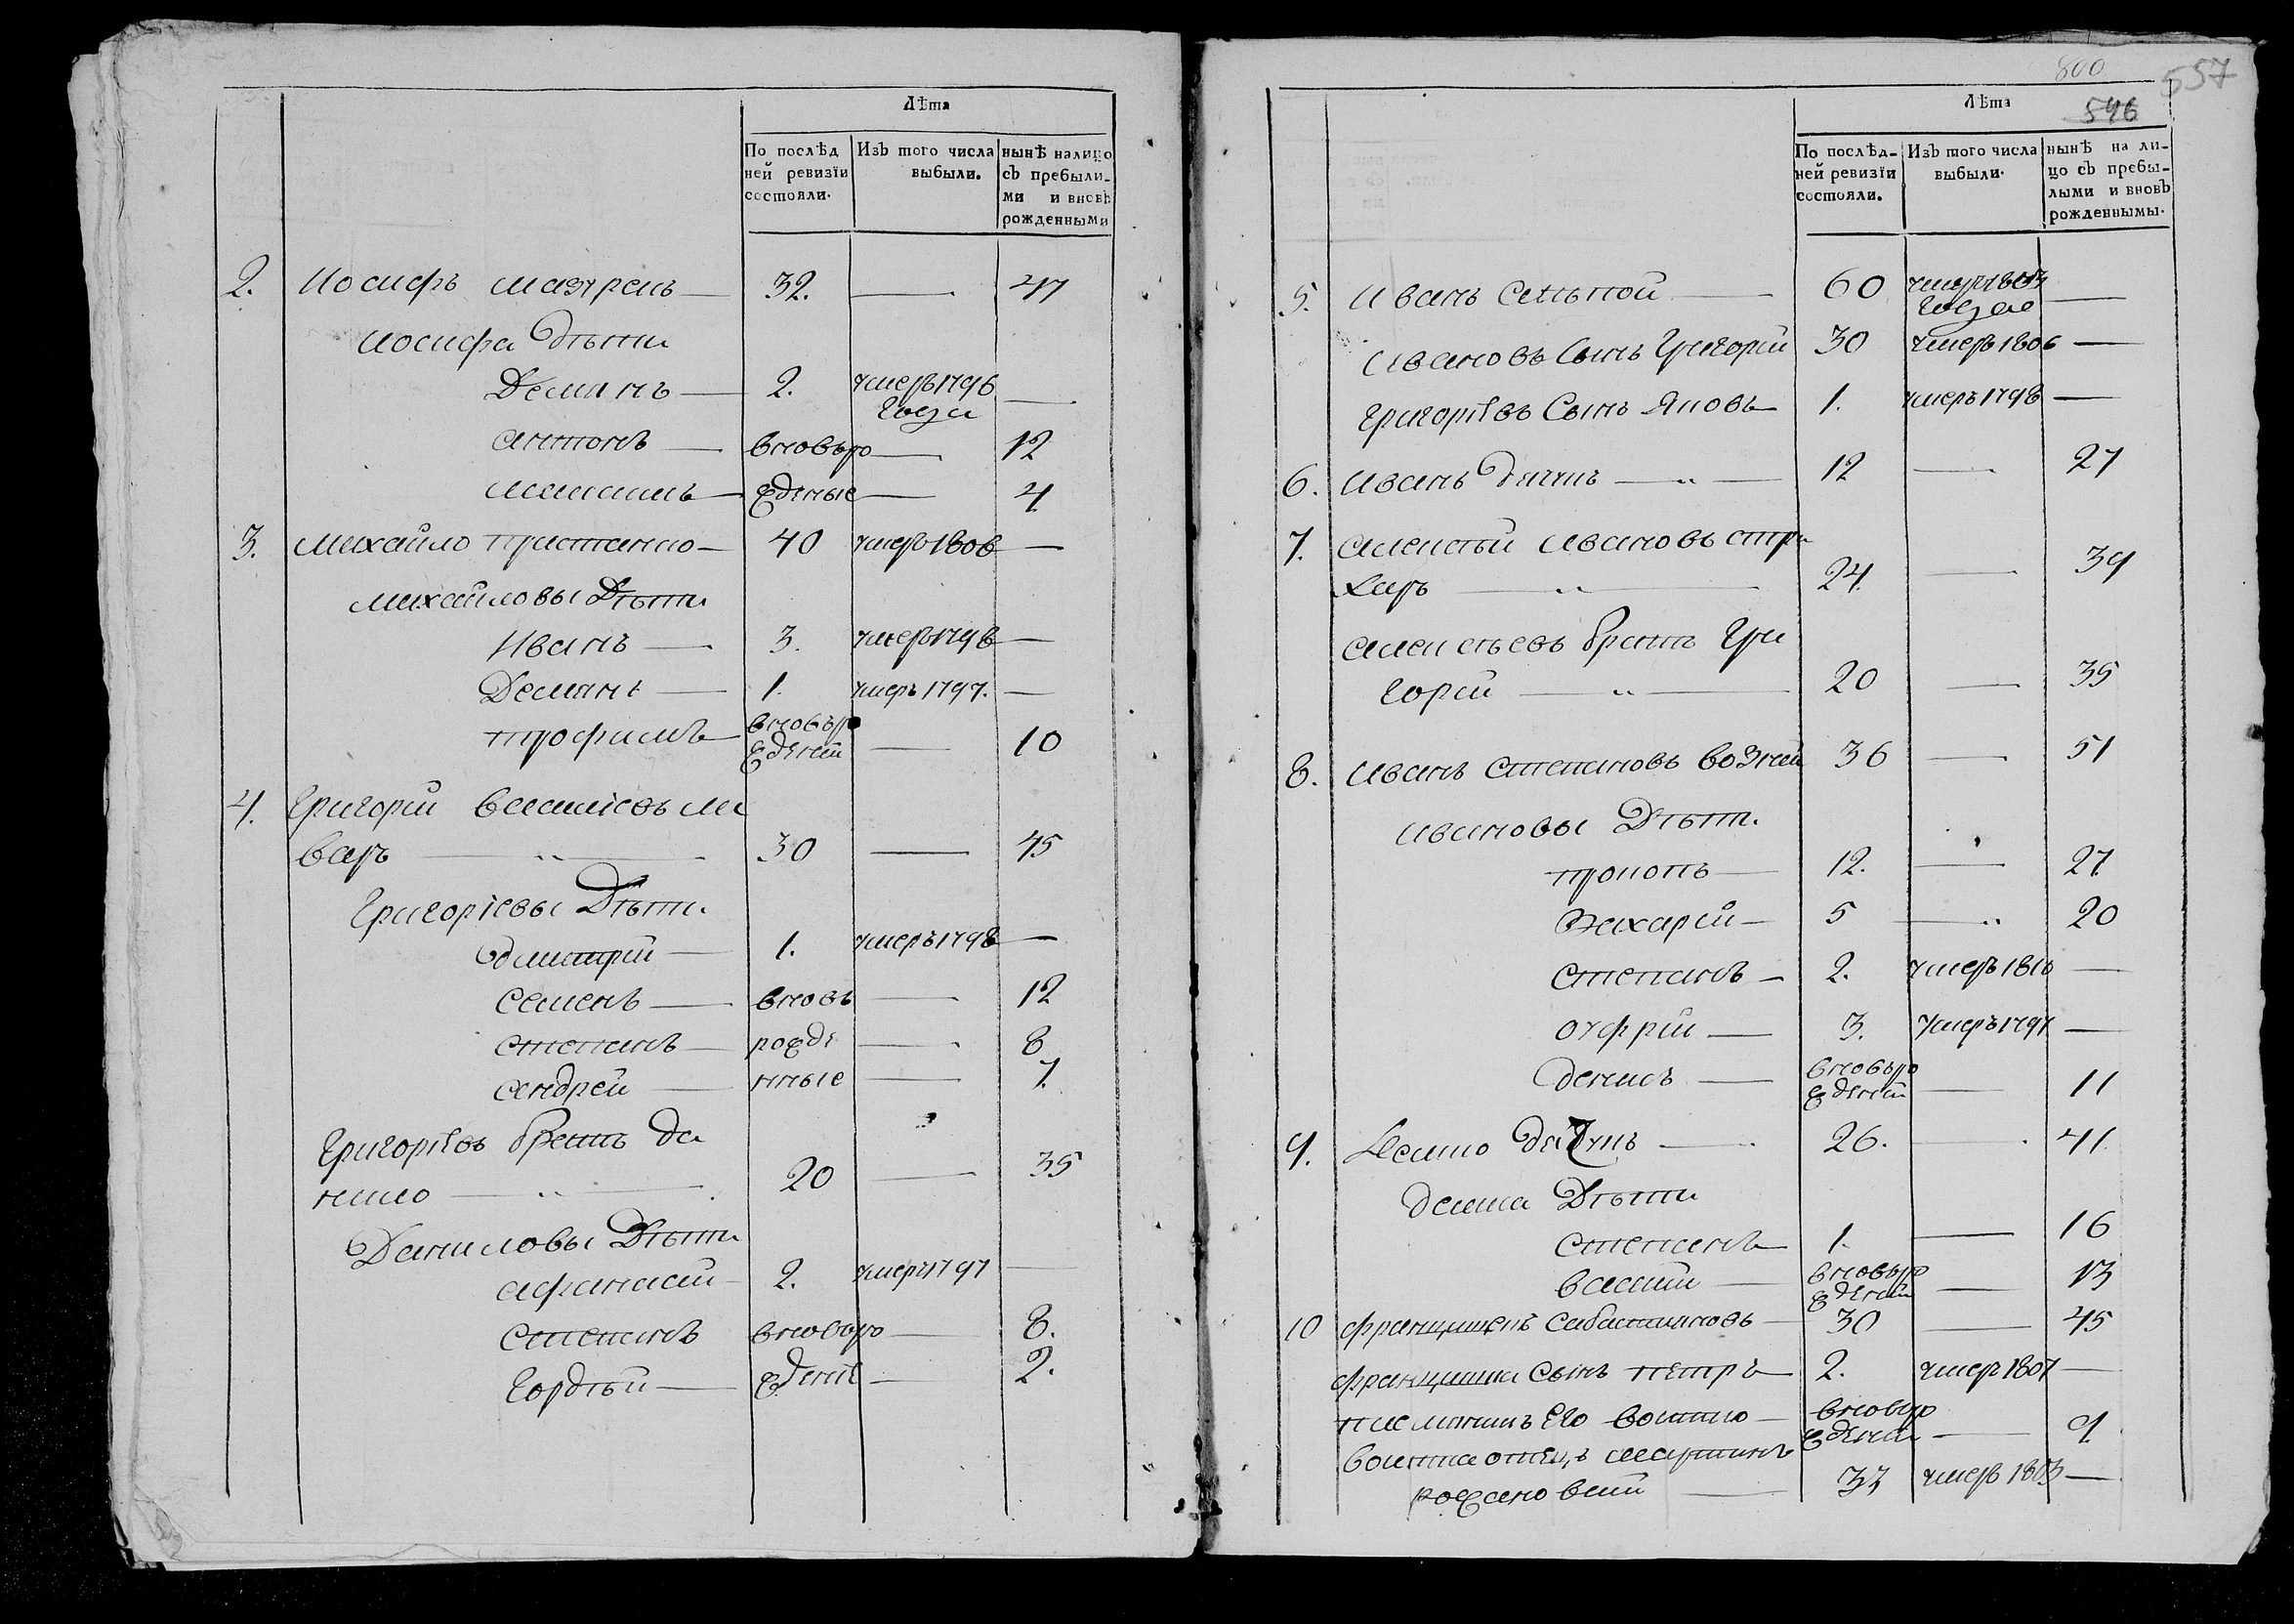 Лѣта
По послѣд
ней ревизїи
состояли.
Изъ того числа
выбыли.
нынѣ налицо
съ пребыли-
ми и вновь
рожденными
2. Иосифъ 32. — 47
иосифа Дѣти
Демянъ — 2. умеръ 1796 —
года
антонъ — вновьро — 12
— жденые — 4
3. Михайло — 40 умеръ 1806 —
михайловы Дѣти
Иванъ — 3. умеръ 1798 —
Демянъ — 1. умеръ 1797. —
трофимъ — вновьро
жденей — 10
4. Григорій
варъ — 30 — 45
Григоріевы Дѣти.
дмитрей — 1. умеръ 1798 —
семенъ — вновь — 12
степанъ — рожде — 8
андрей — нные — 7.
Григоріевъ братъ да
нило — 20 — 35
Даниловы Дѣти
афанасей — 2. умеръ 1797 —
степанъ вновьро — 8.
гордѣй — ждение — 2.
800
557
546
Лѣта
По послѣд-
ней ревизїи
состояли.
Изъ того числа
выбыли.
нынѣ на ли-
цо съ пребы-
лыми и вновь
рожденнымы.
5. иванъ — 60 умеръ 1813 —
года
ивановъ сынъ григорій 30 умеръ 1806 —
григоріевъ Сынъ Яковъ 1. умеръ 1798 —
6. иванъ — 12 — 27
7. алексѣй ивановъ
— 24. — 39
алексѣевъ братъ гри
горій — 20 — 35
8. иванъ степановъ возней 36 — 51
ивановы Дѣти.
прокопъ — 12. — 27
Захарій — 5 — 20
степанъ — 2. умеръ 1810 —
— 3. умеръ 1797 —
денисъ — вновьро
жденей — 11
9. Демко — 26. — 41
демка Дѣти
степанъ — 1. — 16
василій — вновьро
жденей — 13
10 францишекъ сабастияновъ — 30 — 45
францишка сынъ петръ — 2. умеръ 1807 —
племяникъ его войтко — вновьро
жденей — 9
войтка отецъ мартинъ
33 умеръ 1803 —